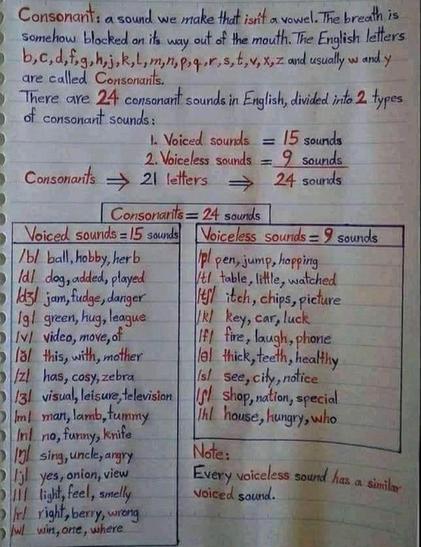 Consonant: a sound we make that isn't a vowel. The breath is
somehow blocked on its way out of the mouth. The English letters
b,c,d,f,g,h,j,k,l,m,n,p,q,r,s,t,v,x,z and usually w and y
are called Consonants.
There are 24 consonant sounds in English, divided into 2 types
of consonant sounds:
1. Voiced sounds = 15 sounds
2. Voiceless sounds = 9 sounds
Consonants ⇒ 21 letters ⇒ 24 sounds
Consonants = 24 sounds
Voiced sounds = 15 sounds
/b/ ball, hobby, herb
/d/ dog, added, played
/dʒ/ jam, fudge, danger
/g/ green, hug, league
/v/ video, move, of
/ð/ this, with, mother
/z/ has, cosy, zebra
/ʒ/ visual, leisure, television
/m/ man, lamb, tummy
/n/ no, funny, knife
/ŋ/ sing, uncle, angry
/j/ yes, onion, view
/l/ light, feel, smelly
/r/ right, berry, wrong
/w/ win, one, where
Voiceless sounds = 9 sounds
/p/ pen, jump, hopping
/t/ table, little, watched
/tʃ/ itch, chips, picture
/k/ key, car, luck
/f/ fire, laugh, phone
/θ/ thick, teeth, healthy
/s/ see, city, notice
/ʃ/ shop, nation, special
/h/ house, hungry, who
Note:
Every voiceless sound has a similar
voiced sound.